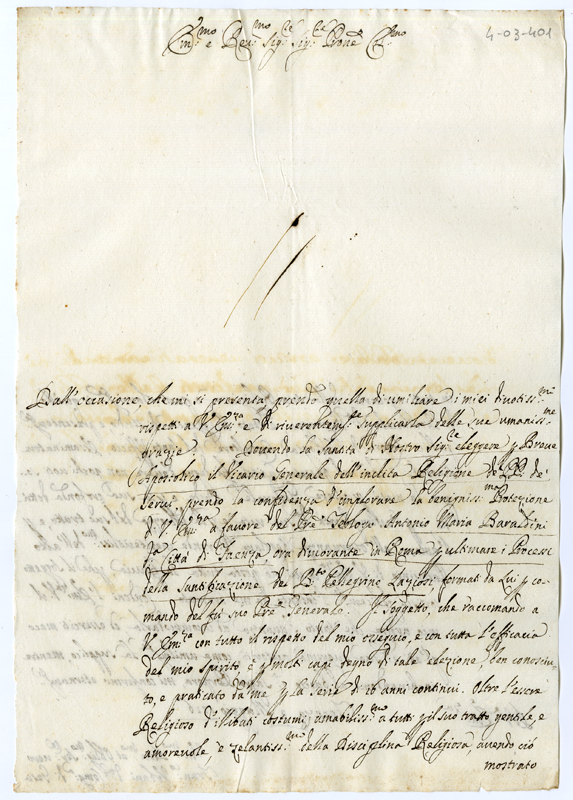 4-03-401
Em.mo e Rev.mo Sig.re Sig.re Prone Col.mo
Dall'occasione, che mi si presenta, prendo quella di umiliare i miei divotiss.mi
rispetti a V.ra Em.za e di riverentem.te supplicarla delle sue umaniss.me
grazie. Dovendo la Santità di Nostro Sig.re eleggere p Breve
Apostolico il Vicario Generale dell'inclita Religione de PP. de
Servi, prendo la confidenza d'implorare la benigniss.ma Protezione
di V.ra Em.za a favore del Pre Teologo Antonio Maria Baraldini
da Città di Faenza, ora dimorante in Roma p ultimare i Processi
della Santificazione del B.to Pellegrino Laziosi, formati da Lui p co-
mando del fù suo Pre Generale. Il Soggetto, che raccomando a
V.ra Em.za con tutto il rispetto del mio ossequio, e con tutta l'efficacia
del mio spirito è p molti capi degno di tale elezione, ben conosciu-
to, e praticato da me p la serie di 26 anni continui. Oltre l'essere
Religioso d'illibati costumi, amabiliss.mo a tutti p il suo tratto gentile, e
amorevole, e zelantiss.mo della Disciplina Religiosa, avendo ciò
mostrato